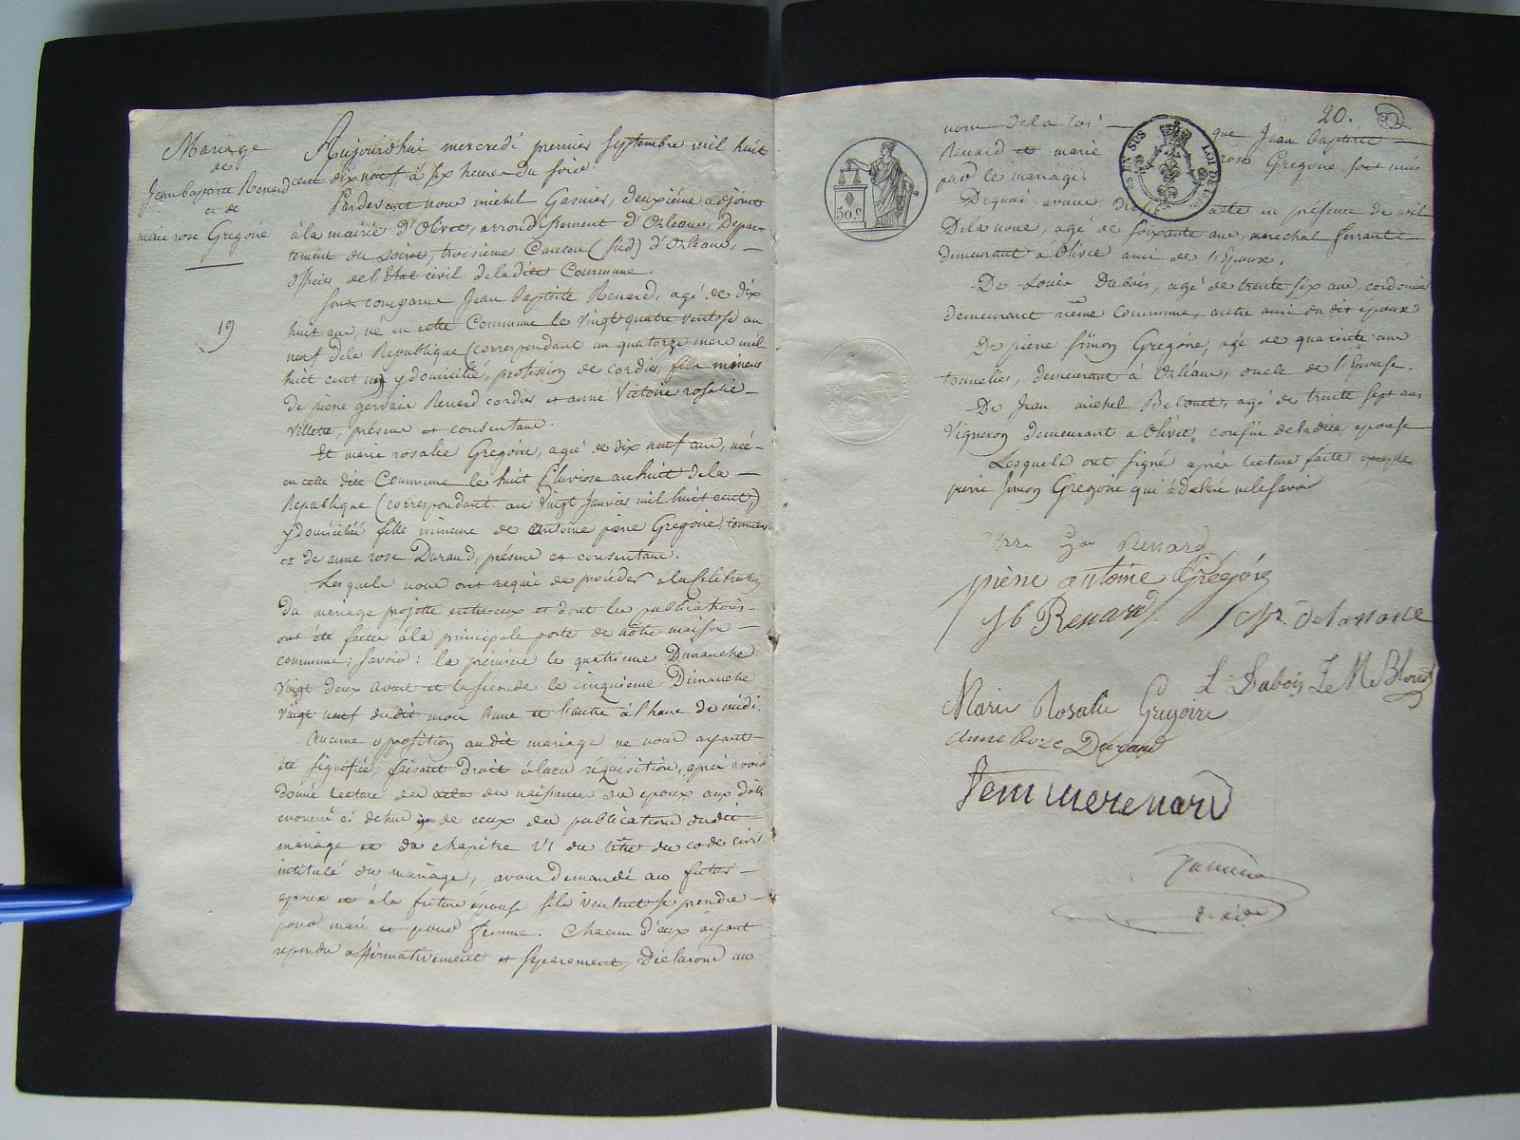 Mariage
de
Jean Baptiste Renard
et de
marie rose Gregoire
19
Aujourdhui mercredi premier septembre mil huit
cent dix neuf, à six heures du soir
Pardevant nous michel Gasnier, deuxième adjoint
à la mairie d'Olivet, arrondissement d'Orléans, Depar-
tement du Loiret, troisième Canton (sud) d'Orléans,
officier de l'Etat civil de ladite Commune.
Sont comparus Jean Baptiste Renard, agé de dix
huit ans né en cette Commune le vingt quatre ventose an
neuf de la Republique (correspondant au quatorze mars mil
huit cent un) y domicilié, profession de cordier, fils mineur
de pierre gervais Renard cordier et anne Victoire rosalie
villette, présens et consentans.
Et marie rosalie Gregoire, agée de dix neuf ans, née
en cette dite Commune le huit Pluviose an huit de la
Republique (correspondant au vingt Janvier mil huit cent)
y domiciliée fille mineure de antoine pierre Gregoire tonnelier
et de anne rose Durand, présens et consentans.
Lesquels nous ont requis de procéder a la célébration
du mariage projetté entr'eux et dont les publications
ont été faites à la principale porte de notre maison
commune; savoir: la première le quatrieme Dimanche
vingt deux aout et la seconde le cinquieme Dimanche
vingt neuf dudit mois l'une et l'autre à l'heure de midi.
Aucune opposition audit mariage ne nous ayant
été signifiée, faisant droit à leur réquisition, après avoir
donné lecture des actes de naissance des epoux aux dits
de ceux des publications dudit
mariage et du chapitre VI du titre du code civil
intitulé du mariage, avons demandé au futur
epoux et à la future épouse s'ils veulent se prendre
pour mari et pour femme. Chacun d'eux ayant
repondu affirmativement et séparement, Déclarons au
20.
nom de la loi que Jean baptiste
Renard et marie rose Gregoire sont unis
par le mariage.
50 c
EN SUS LOI DE
De quoi avons dressé acte en présence de
Delanoue, agé de soixante ans, marechal ferrant
demeurant a Olivet ami de l'Epoux.
De Louis Dubois, agé de trente six ans, cordonnier
demeurant même commune, autre ami du dit époux
De pierre Simon Gregoire, agé de quarante ans
tonnelier, demeurant à Orléans, oncle de l'Epouse.
De Jean michel Belouet, agé de trente sept ans
Vigneron demeurant a Olivet, cousin de la dite epouse
Lesquels ont signé après lecture faite
pierre Simon Gregoire qui a déclaré ne le savoir
Renard
pière antoine Grégoire
J b Renard
Delanoue
L. Dubois
Marie Rosalie Gregoire
anne Roze Durand
femme renard
Gasnier